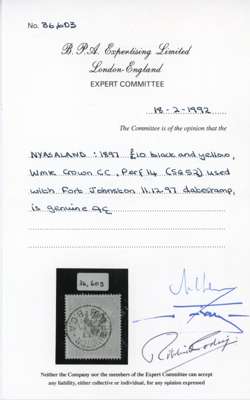 No. 86,603
B. P. A. Expertising Limited
London-England
EXPERT COMMITTEE
18-2-1992
The Committee is of the opinion that the
NYASALAND : 1897 £10 black and yellow,
Wmk Crown CC, Perf 14 (SG52) used
with Fort Johnston 11.12.97 datestamp,
is genuine
86,603
Neither the Company nor the members of the Expert Committee can accept
any liability, either collective or individual, for any opinion expressed